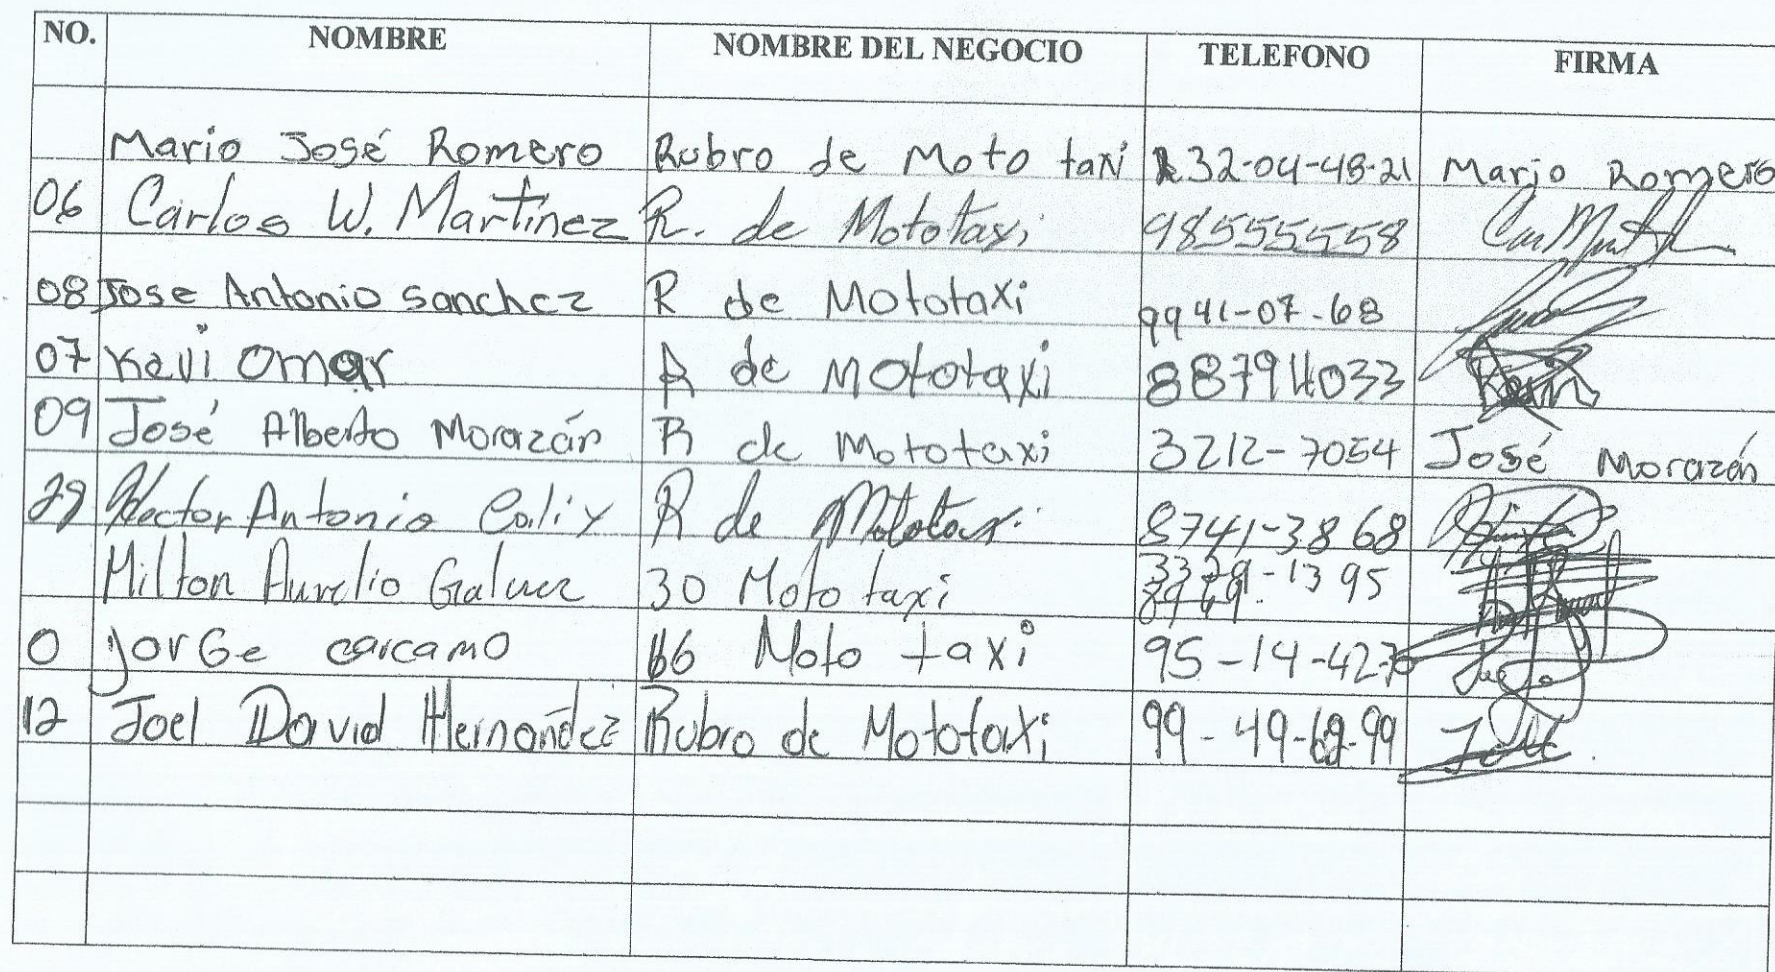 NO. NOMBRE NOMBRE DEL NEGOCIO TELEFONO FIRMA
Mario José Romero Rubro de Moto taxi 32-04-48-21 Mario Romero
06 Carlos W. Martínez R. de Mototaxi 98555558
08 Jose Antonio Sanchez R de Mototaxi 9941-07-68
07 Kevi Omar R de Mototaxi 88794033 Kevin
09 José Alberto Morazán R de Mototaxi 3212-7054 José Morazán
29 Hector Antonio Calix R de Mototaxi 8741-3868
Milton Aurelio Galvez 30 Moto taxi 1395
0 Jorge carcamo 66 Moto taxi 95-14-42-70
12 Joel David Hernández Rubro de Mototaxi 99-49-69-99